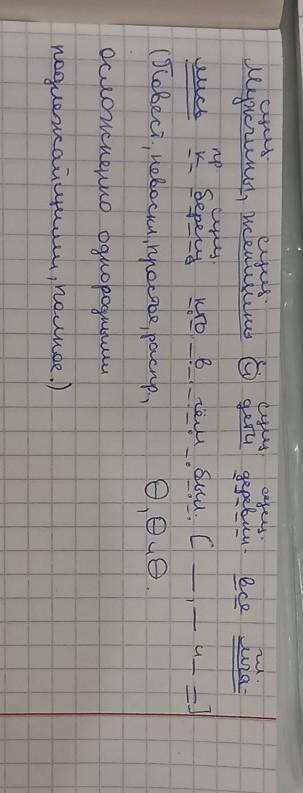 сущ. сущ. с. сущ. сущ. гл.
Мужчины, женщины и дети деревни - все мча-
пр сущ.
лись к берегу кто в чём был. [ —, — и — =]
(Повест., невоскл., простое, распр., О, О и О.
осложнено однородными
подлежащими, полное.)